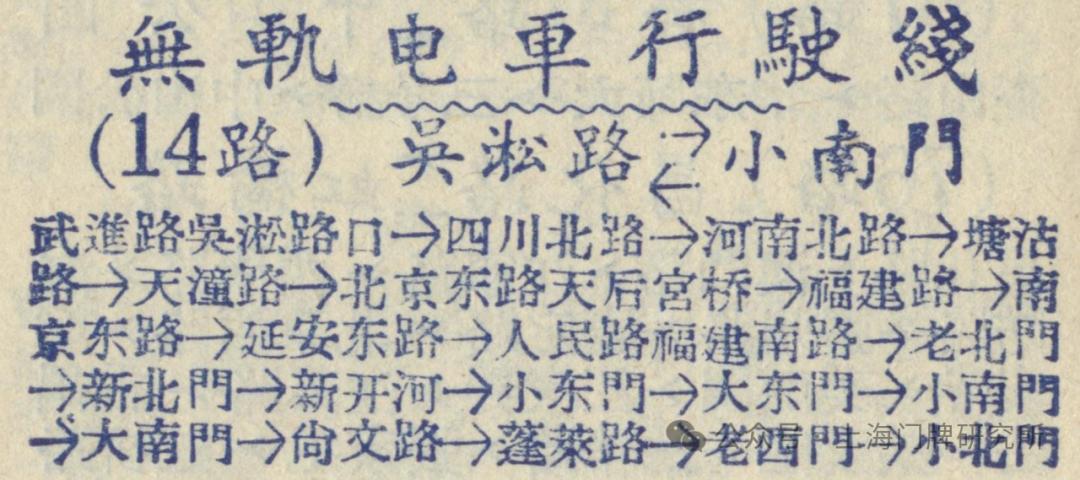 無軌电車行駛綫
(14路) 吳淞路⇄小南門
武進路吳淞路口→四川北路→河南北路→塘沽
路→天潼路→北京东路天后宮桥→福建路→南
京东路→延安东路→人民路福建南路→老北門
→新北門→新开河→小东門→大东門→小南門
→大南門→尙文路→蓬萊路→老西門→小北門
公众号·上海门牌研究所